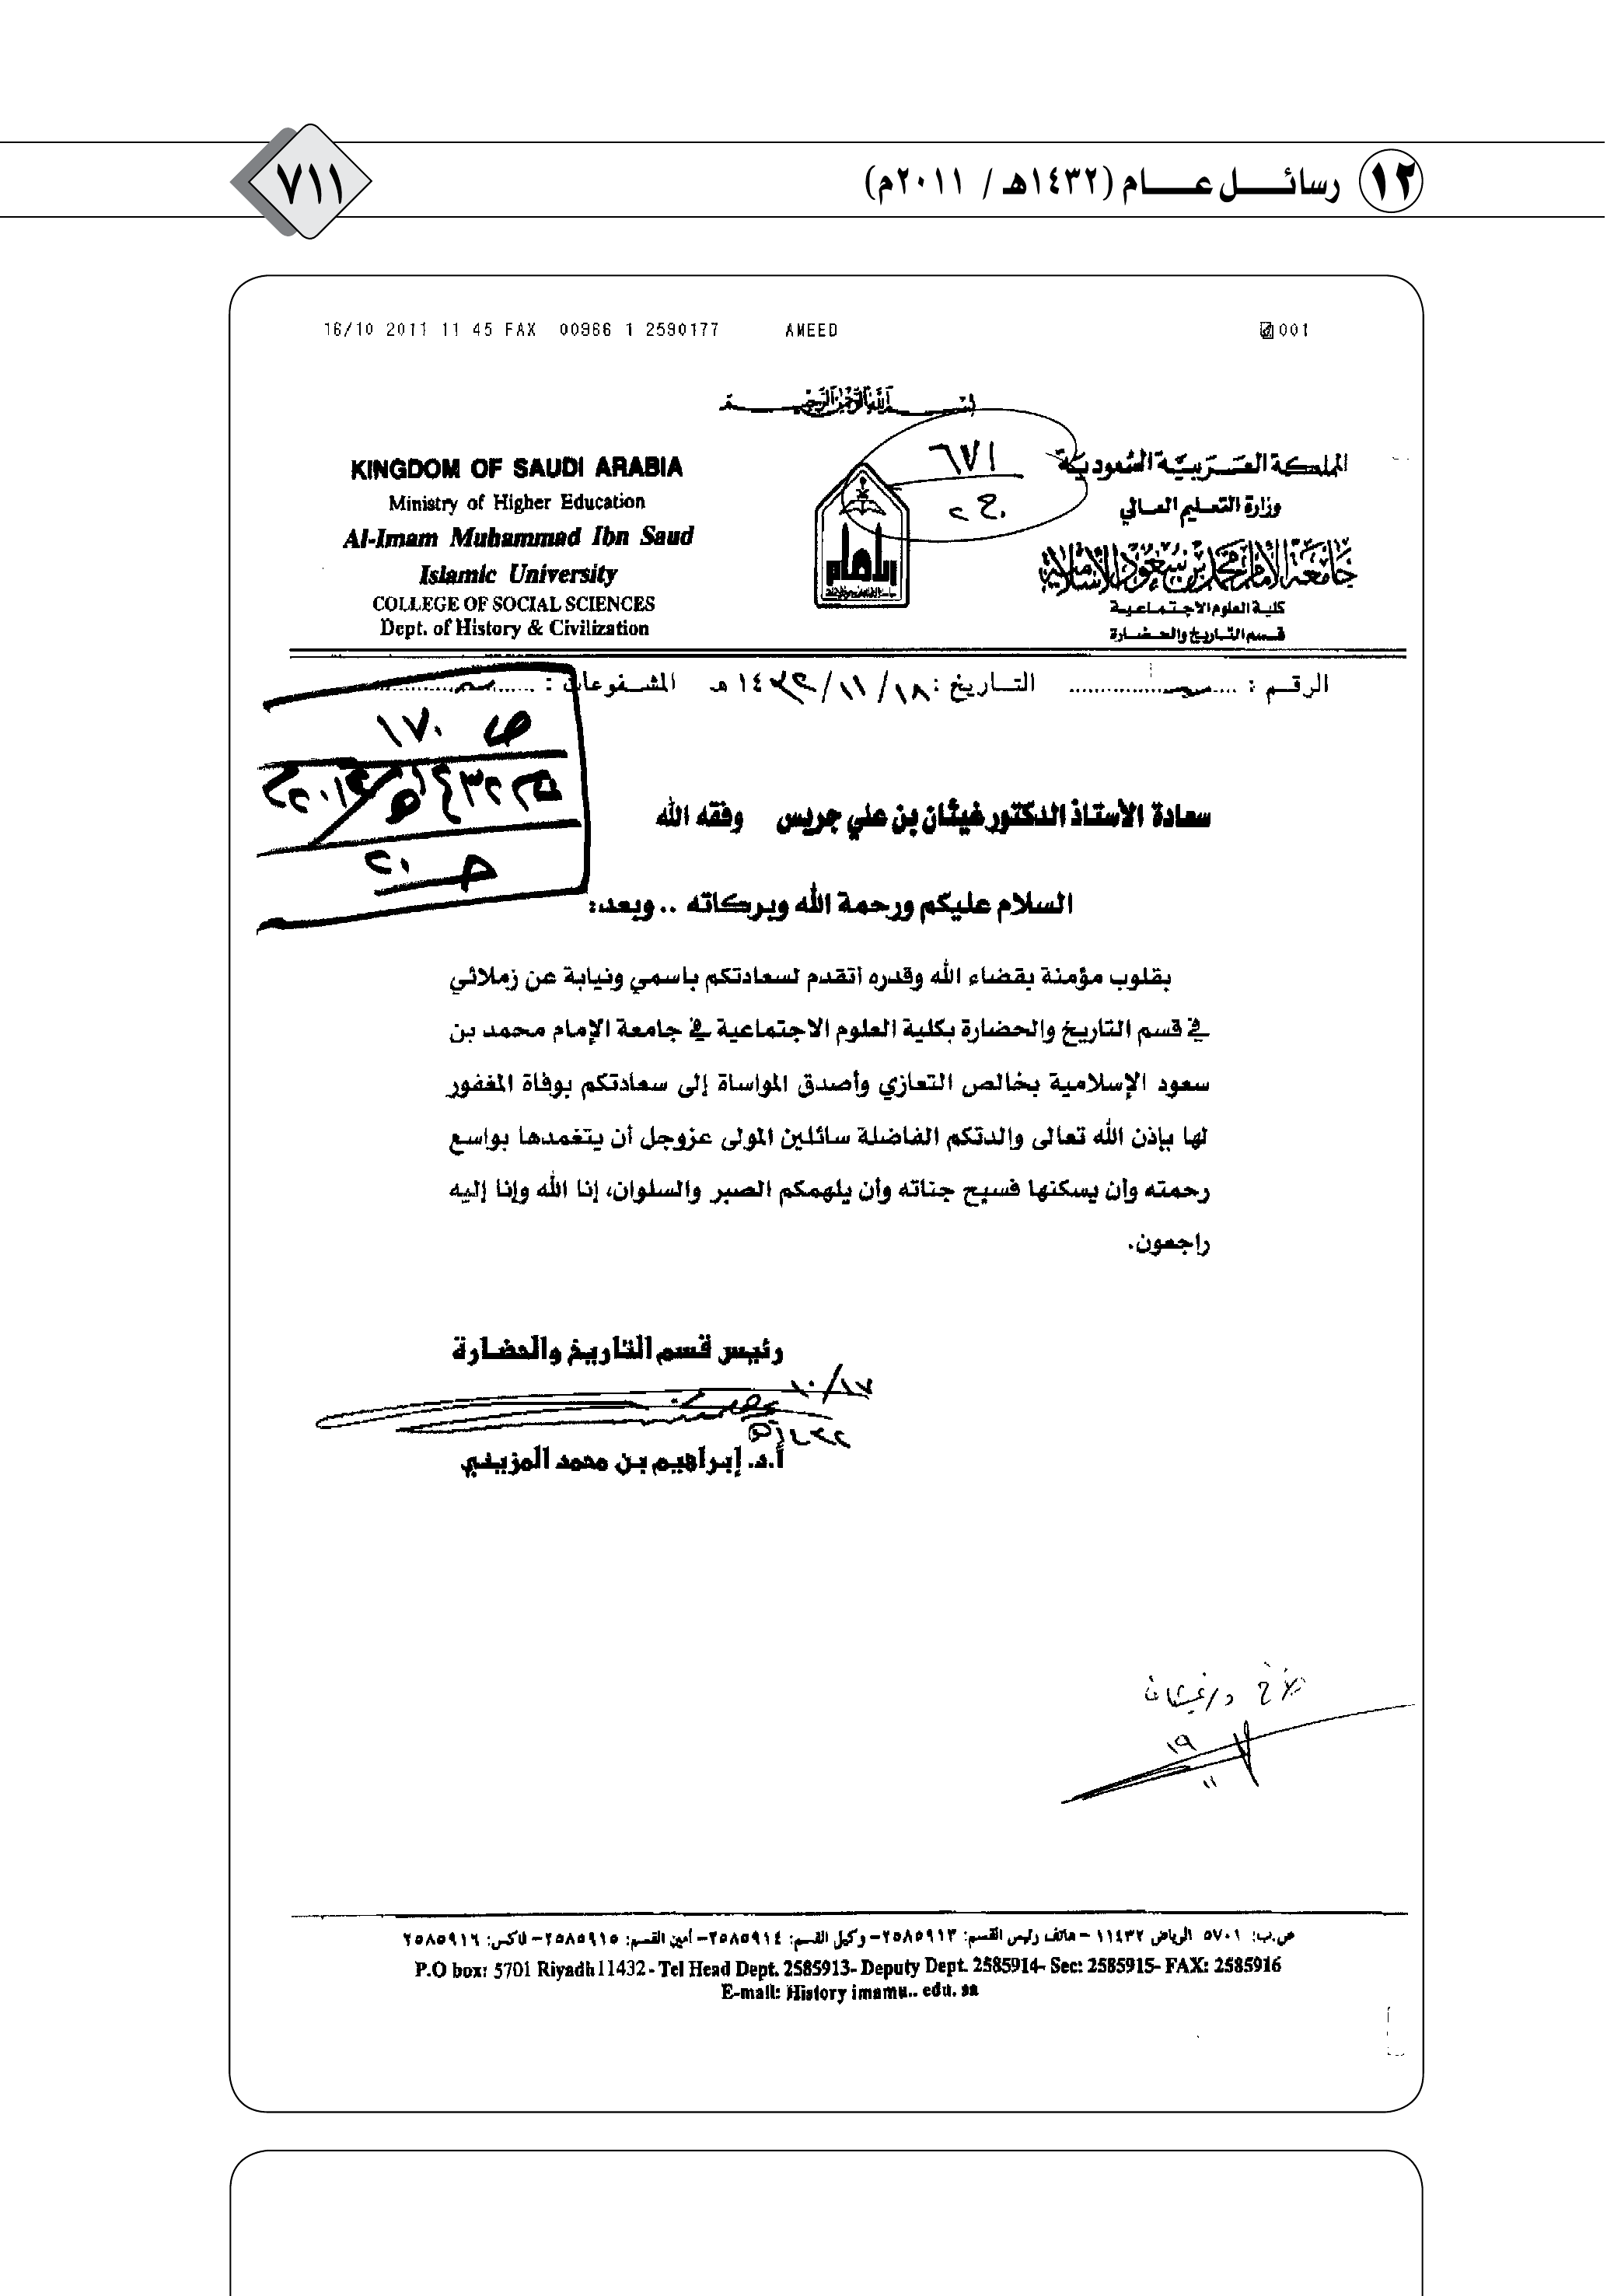 ١٢ رسائل عام (١٤٣٢هـ / ٢٠١١م)
٧١١
16/10 2011 11 45 FAX 00966 1 2590177 AMEED 001
بسم الله الرحمن الرحيم
KINGDOM OF SAUDI ARABIA
Ministry of Higher Education
Al-Imam Muhammad Ibn Saud
Islamic University
COLLEGE OF SOCIAL SCIENCES
Dept. of History & Civilization
٦٧١
ج٢٠
المملكة العربية السعودية
وزارة التعليم العالي
جامعة الإمام محمد بن سعود الإسلامية
كلية العلوم الاجتماعية
قسم التاريخ والحضارة
الرقم : التاريخ : ١٨/ ١١/ ١٤٣٢ هـ المشفوعات :
ص ١٧٠
ج ٢٠
سعادة الأستاذ الدكتور غيثان بن علي جريس وفقه الله
السلام عليكم ورحمة الله وبركاته .. وبعد:
بقلوب مؤمنة بقضاء الله وقدره أتقدم لسعادتكم باسمي ونيابة عن زملائي
في قسم التاريخ والحضارة بكلية العلوم الاجتماعية في جامعة الإمام محمد بن
سعود الإسلامية بخالص التعازي وأصدق المواساة إلى سعادتكم بوفاة المغفور
لها بإذن الله تعالى والدتكم الفاضلة سائلين المولى عزوجل أن يتغمدها بواسع
رحمته وأن يسكنها فسيح جناته وأن يلهمكم الصبر والسلوان، إنا الله وإنا إليه
راجعون.
رئيس قسم التاريخ والحضارة
أ.د. إبراهيم بن محمد المزيني
الأخ د/غيثان
١٩
١١
ص.ب: ٥٧٠١ الرياض ١١٤٣٢ – هاتف رئيس القسم: ٢٥٨٥٩١٣– وكيل القسم: ٢٥٨٥٩١٤– أمين القسم: ٢٥٨٥٩١٥– فاكس: ٢٥٨٥٩١٦
P.O box: 5701 Riyadh 11432 - Tel Head Dept. 2585913- Deputy Dept. 2585914- Sec: 2585915- FAX: 2585916
E-mail: History imamu.. edu. sa